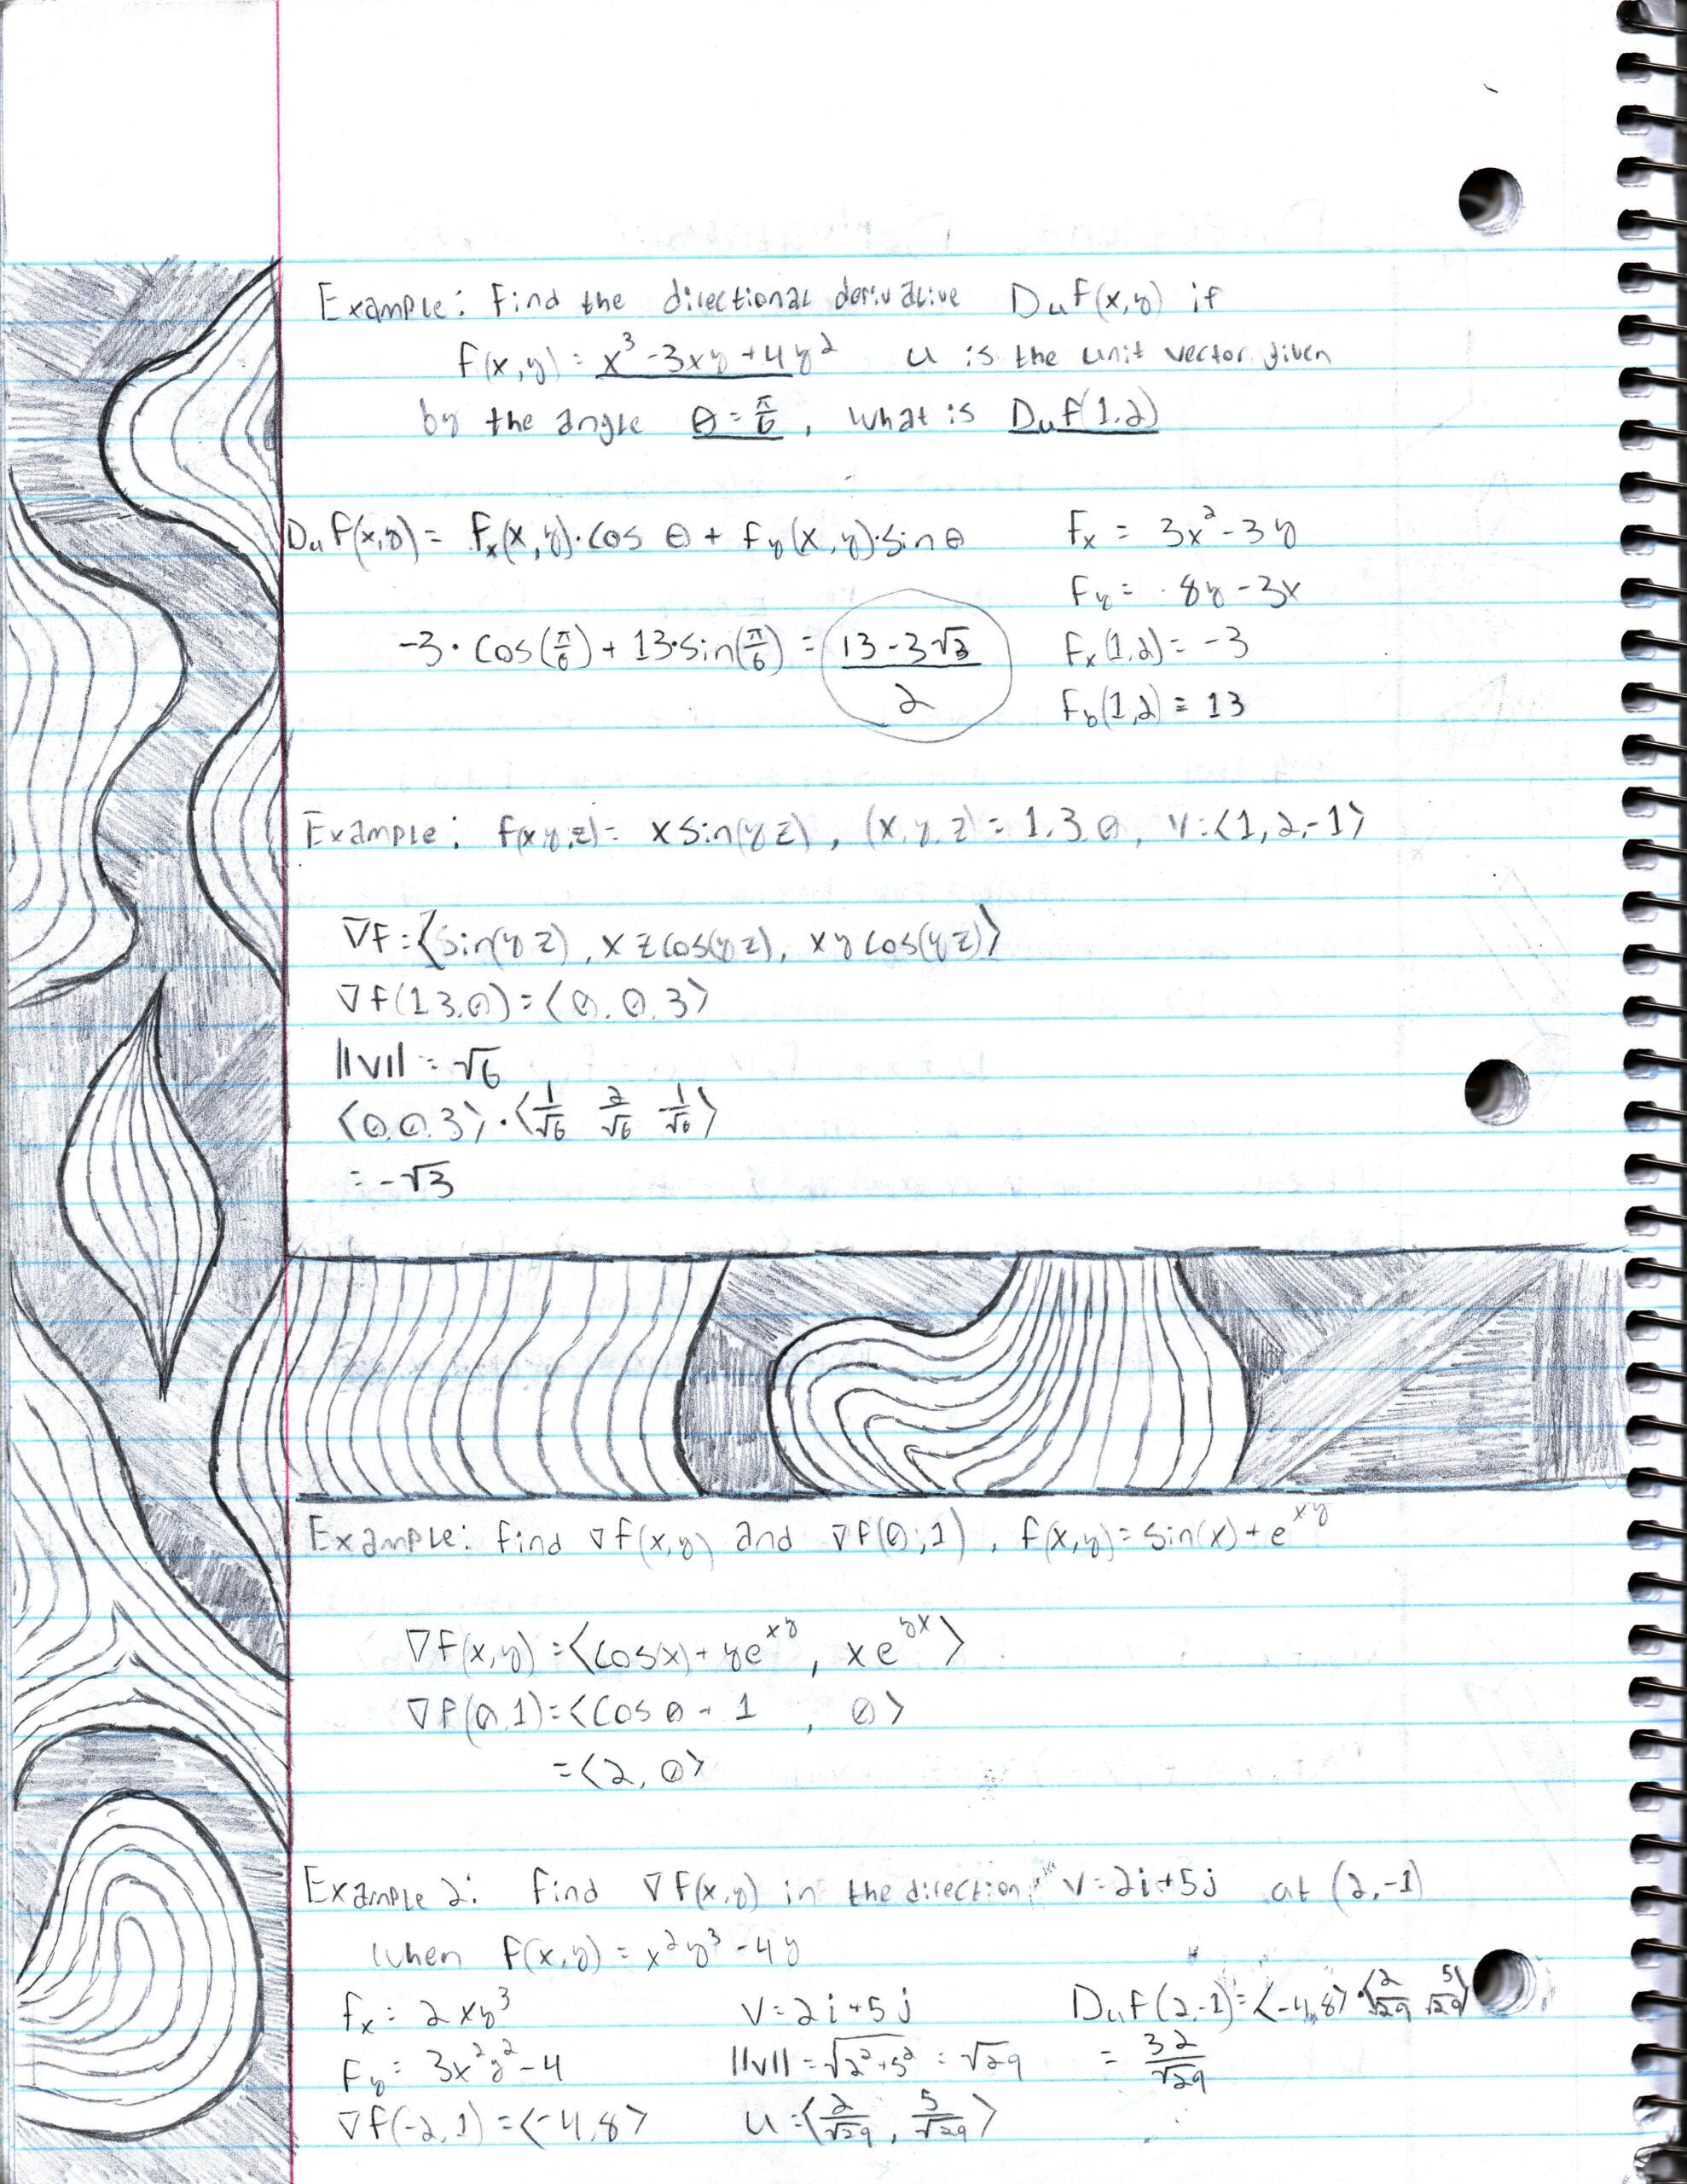 Example: Find the directional derivative Duf(x,y) if
f(x,y) = x³-3xy+4y² u is the unit vector given
by the angle θ=π/6, what is Duf(1,2)
Duf(x,y) = fx(x,y)·cos θ + fy(x,y)·sin θ
fx = 3x²-3y
fy = 8y-3x
-3·cos(π/6) + 13·sin(π/6) = (13-3√3)/2
fx(1,2) = -3
fy(1,2) = 13
Example: f(x,y,z) = x sin(yz), (x,y,z) = 1,3,0, v=⟨1,2,-1⟩
∇f=⟨sin(yz), xzcos(yz), xycos(yz)⟩
∇f(1,3,0)=⟨0,0,3⟩
||v|| = √6
⟨0,0,3⟩·⟨1/√6 2/√6 -1/√6⟩
= -√3
Example: find ∇f(x,y) and ∇f(0,1), f(x,y)=sin(x)+e^xy
∇f(x,y) = ⟨cos(x)+ye^xy, xe^yx⟩
∇f(0,1)=⟨cos0+1, 0⟩
=⟨2,0⟩
Example 2: find ∇f(x,y) in the direction v=2i+5j at (2,-1)
when f(x,y) = x²y³-4y
fx = 2xy³
fy = 3x²y²-4
∇f(-2,1) = ⟨-4,8⟩
v=2i+5j
||v|| = √2²+5² = √29
u=⟨2/√29, 5/√29⟩
Duf(2,-1)=⟨-4,8⟩·⟨2/√29 5/√29⟩
= 32/√29